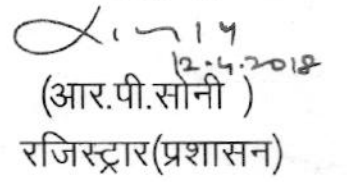 12.4.2018
(आर.पी.सोनी )
रजिस्ट्रार(प्रशासन)